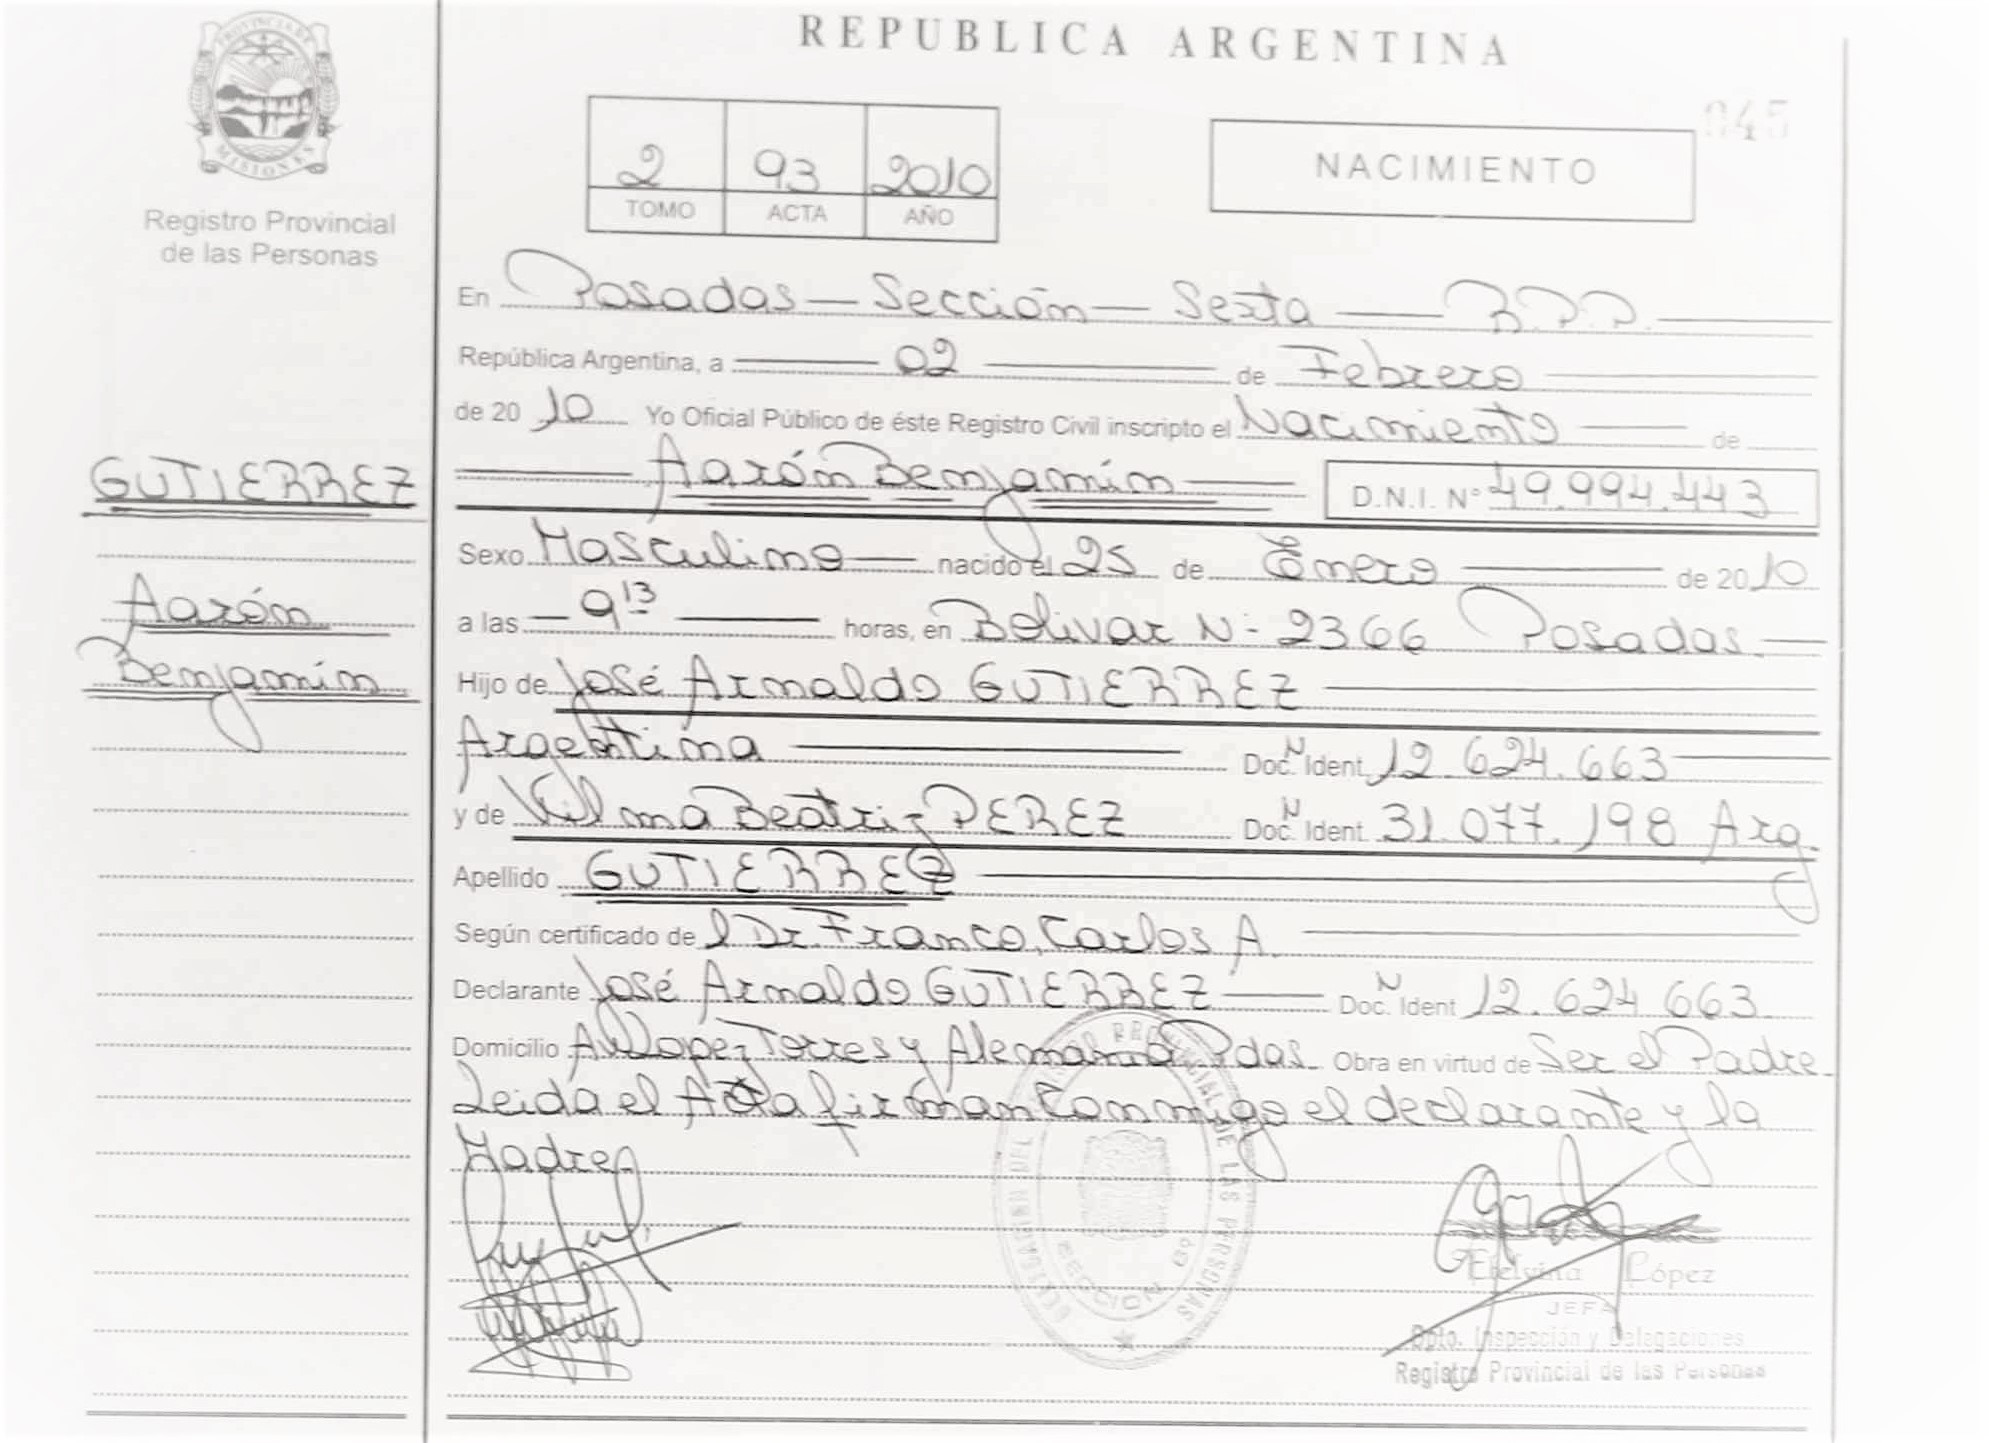 REPUBLICA ARGENTINA
PROVINCIA DE MISIONES
Registro Provincial
de las Personas
045
2 93 2010
TOMO ACTA AÑO
NACIMIENTO
En Posadas — Sección — Sexta — R.P.P.
República Argentina, a 02 de Febrero
de 2010 Yo Oficial Público de éste Registro Civil inscripto el Nacimiento de
GUTIERREZ
Aarón
Benjamín
Aarón Benjamín D.N.I. Nº 49.994.443
Sexo Masculino nacido el 25 de Enero de 2010
a las 9 13 horas, en Bolivar Nº 2366 Posadas
Hijo de José Arnaldo GUTIERREZ
Argentina Doc. N Ident. 12.624.663
y de Vilma Beatriz PEREZ Doc. N Ident. 31.077.198 Arg.
Apellido GUTIERREZ
Según certificado del Dr. Franco, Carlos A.
Declarante José Arnaldo GUTIERREZ Doc. N Ident 12.624.663
Domicilio Av Lopez Torres y Alemania Pdas. Obra en virtud de Ser el Padre
Leida el Acta firman conmigo el declarante y la
Madre
SECCION 6ª
López
JEFA
Dpto. Inspección y Delegaciones
Registro Provincial de las Personas